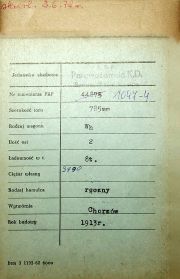 Jednostka służbowa Parowozownia K.D.
Nr inwentarza PKP 44875 1047-4
Szerokość toru 785mm
Rodzaj wagonu Wh
Ilość osi 2
Ładowność w t. 8t.
Ciężar własny 3490
Rodzaj hamulca ręczny
Wytwórnia Chorzów
Rok budowy 1913r.